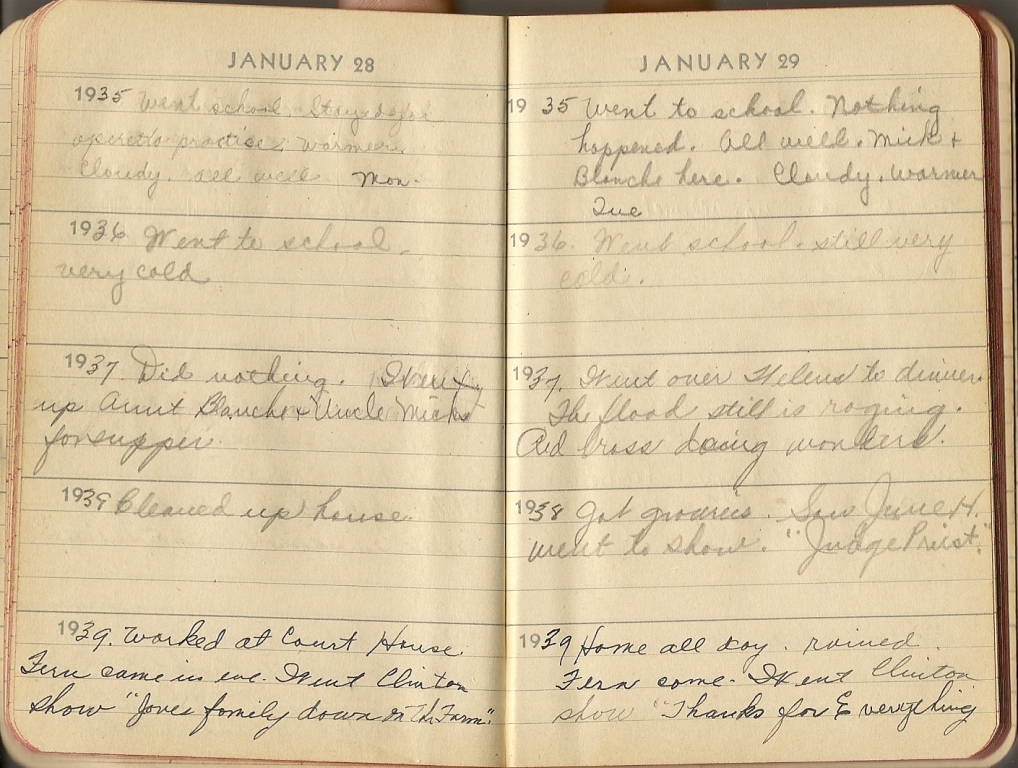 JANUARY 28
1935 Went school. Stayed after
operetta practise. Warmer.
Cloudy. All well Mon.
1936 Went to school.
very cold
1937. Did nothing. Went
up Aunt Blanche + Uncle Micks
for supper.
1938 Cleaned up house.
1939. Worked at Court House
Fern came in eve. Went Clinton
show "Jones family down on The Farm".
JANUARY 29
1935 Went to school. Nothing
happened. All well. Mick +
Blanche here. Cloudy. Warmer
Tue
1936. Went school. still very
cold.
1937. Went over Helens to dinner.
The flood still is raging.
Red Cross doing wonders.
1938 Got groceries. Saw June H.
went to show. "Judge Priest."
1939 Home all day. rained.
Fern came. Went Clinton
show "Thanks for Everything